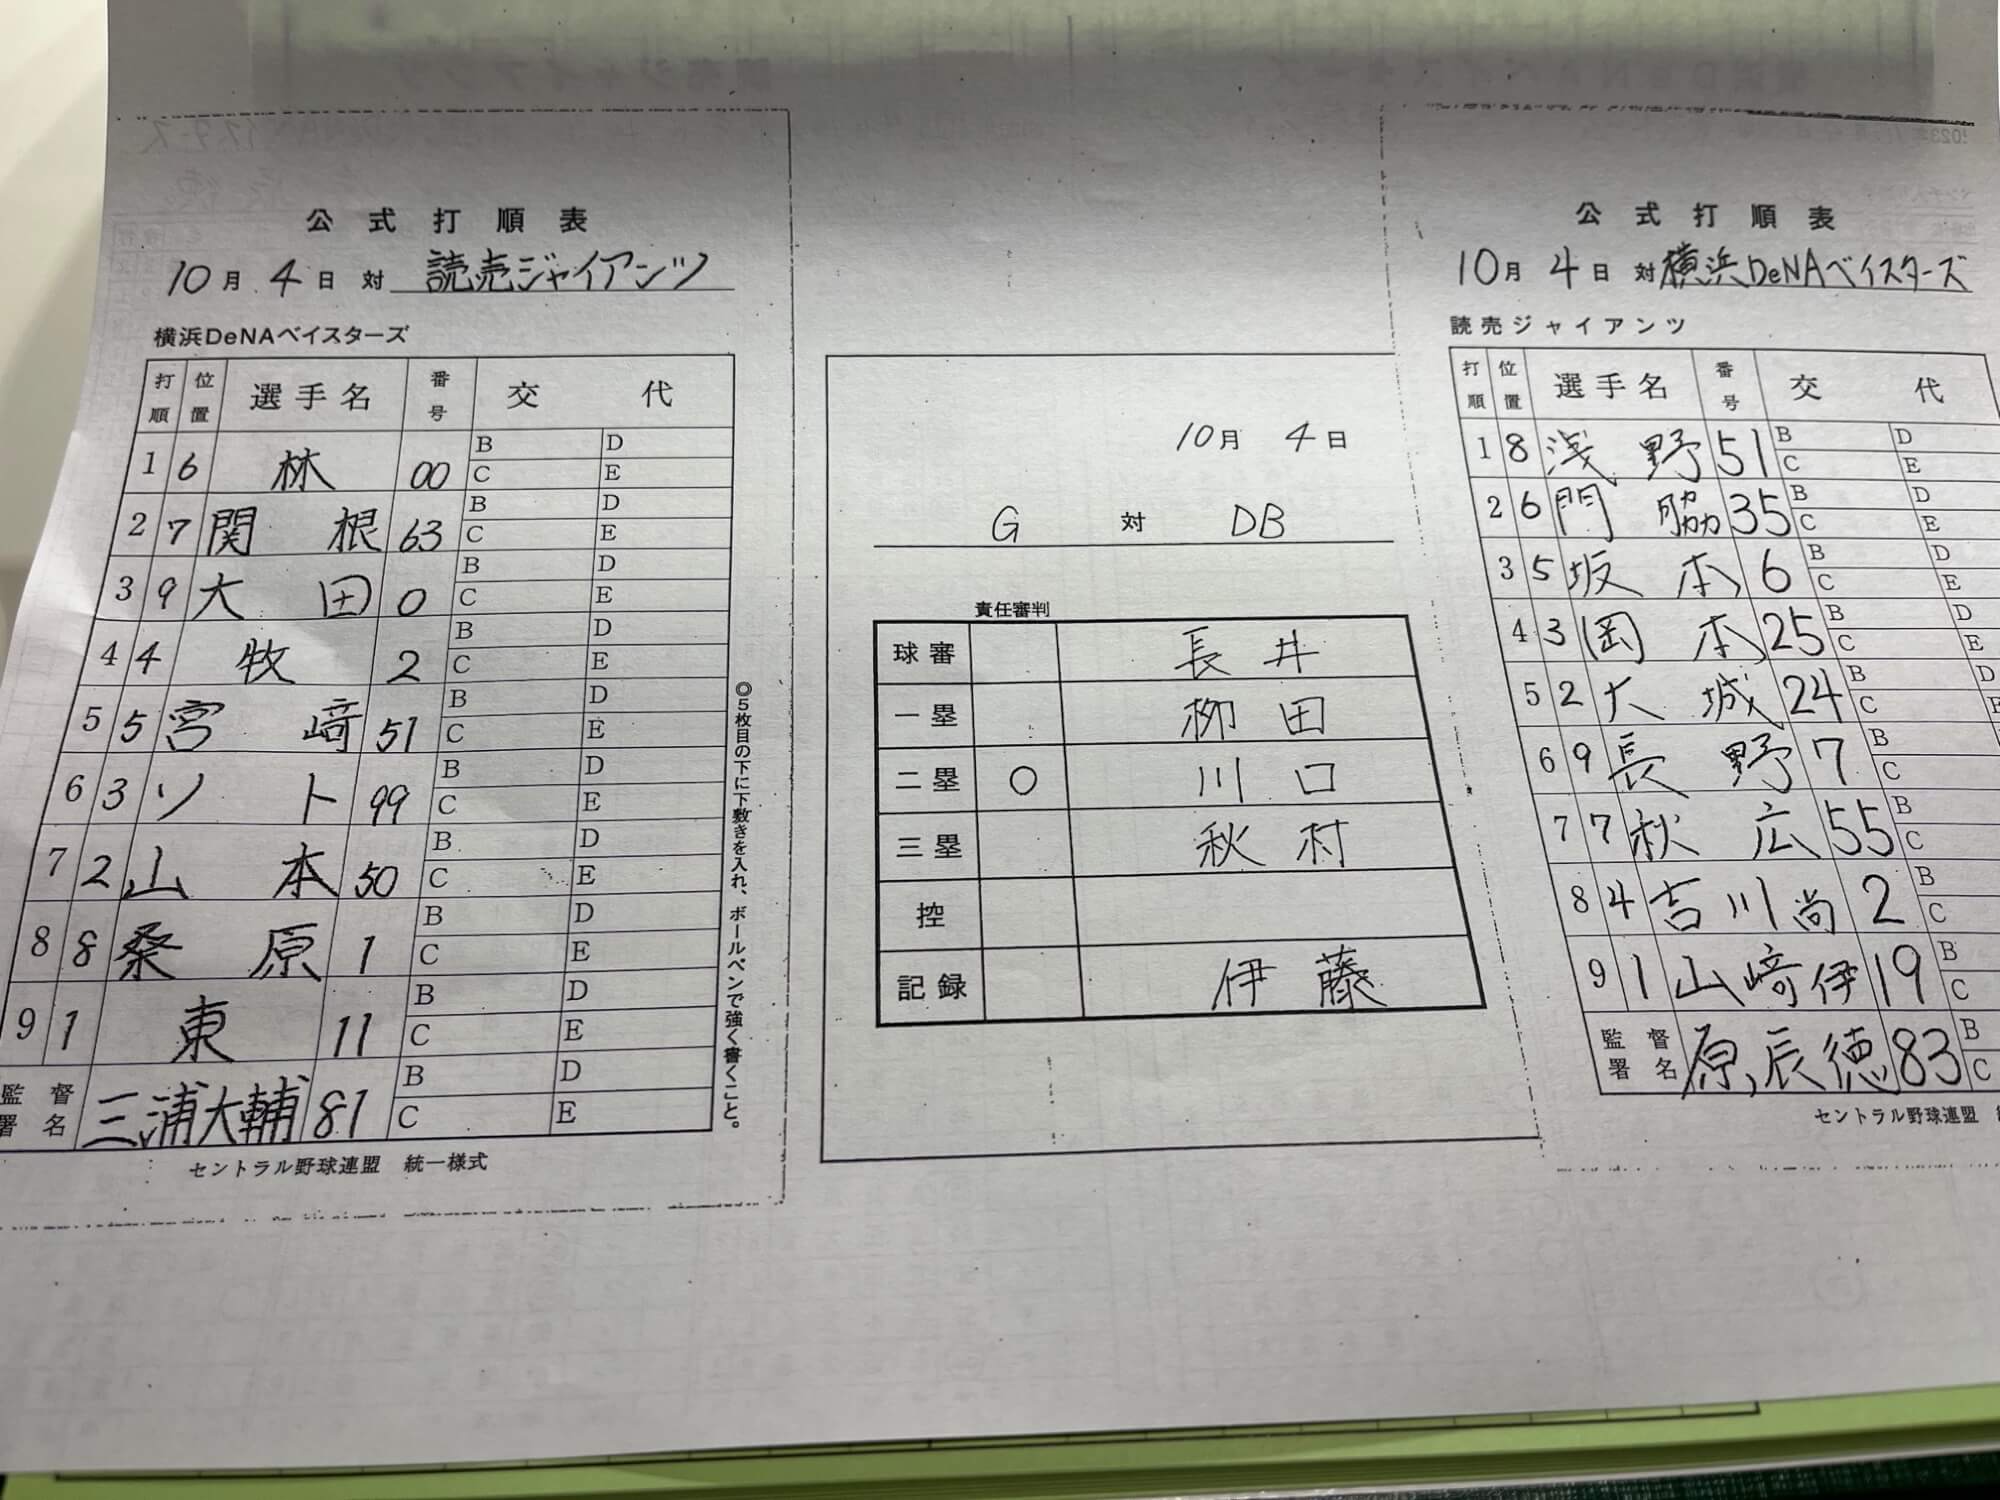 公式打順表
10月4日 対 読売ジャイアンツ
横浜DeNAベイスターズ
打順 位置 選手名 番号 交代
1 6 林 00 B D C E
2 7 関根 63 B D C E
3 9 大田 0 B D C E
4 4 牧 2 B D C E
5 5 宮﨑 51 B D C E
6 3 ソト 99 B D C E
7 2 山本 50 B D C E
8 8 桑原 1 B D C E
9 1 東 11 B D C E
監督署名 三浦大輔 81 B D C E
セントラル野球連盟 統一様式
◎5枚目の下に下敷きを入れ、ボールペンで強く書くこと。
10月4日
G 対 DB
責任審判
球審 長井
一塁 柳田
二塁 ○ 川口
三塁 秋村
控
記録 伊藤
公式打順表
10月4日 対 横浜DeNAベイスターズ
読売ジャイアンツ
打順 位置 選手名 番号 交代
1 8 浅野 51 B D C E
2 6 門脇 35 B D C E
3 5 坂本 6 B D C E
4 3 岡本 25 B D C E
5 2 大城 24 B D C E
6 9 長野 7 B C
7 7 秋広 55 B C
8 4 吉川尚 2 B C
9 1 山﨑伊 19 B C
監督署名 原辰徳 83 B C
セントラル野球連盟